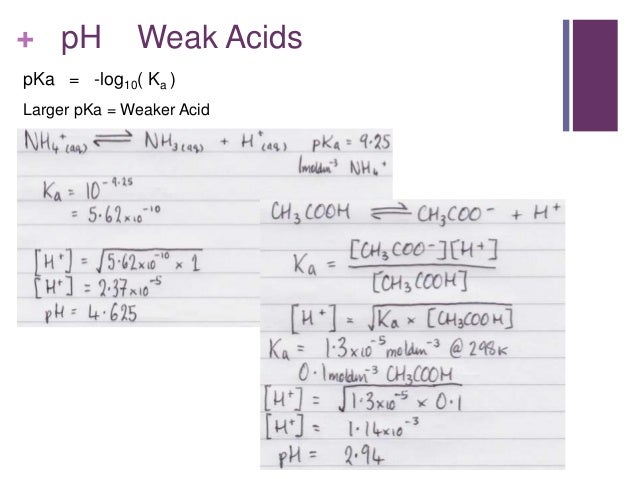 + pH Weak Acids
pKa = -log₁₀( Kₐ )
Larger pKa = Weaker Acid
NH₄⁺(aq) ⇌ NH₃(aq) + H⁺(aq) pKa = 9.25
1moldm⁻³ NH₄⁺
Ka = 10⁻⁹·²⁵
= 5.62x10⁻¹⁰
[H⁺] = √5.62x10⁻¹⁰ x 1
[H⁺] = 2.37x10⁻⁵
pH = 4.625
CH₃COOH ⇌ CH₃COO⁻ + H⁺
Ka = [CH₃COO⁻][H⁺]
[CH₃COOH]
[H⁺] = √Ka x [CH₃COOH]
Ka = 1.3x10⁻⁵ moldm⁻³ @ 298K
0.1moldm⁻³ CH₃COOH
[H⁺] = √1.3x10⁻⁵ x 0.1
[H⁺] = 1.14x10⁻³
pH = 2.94